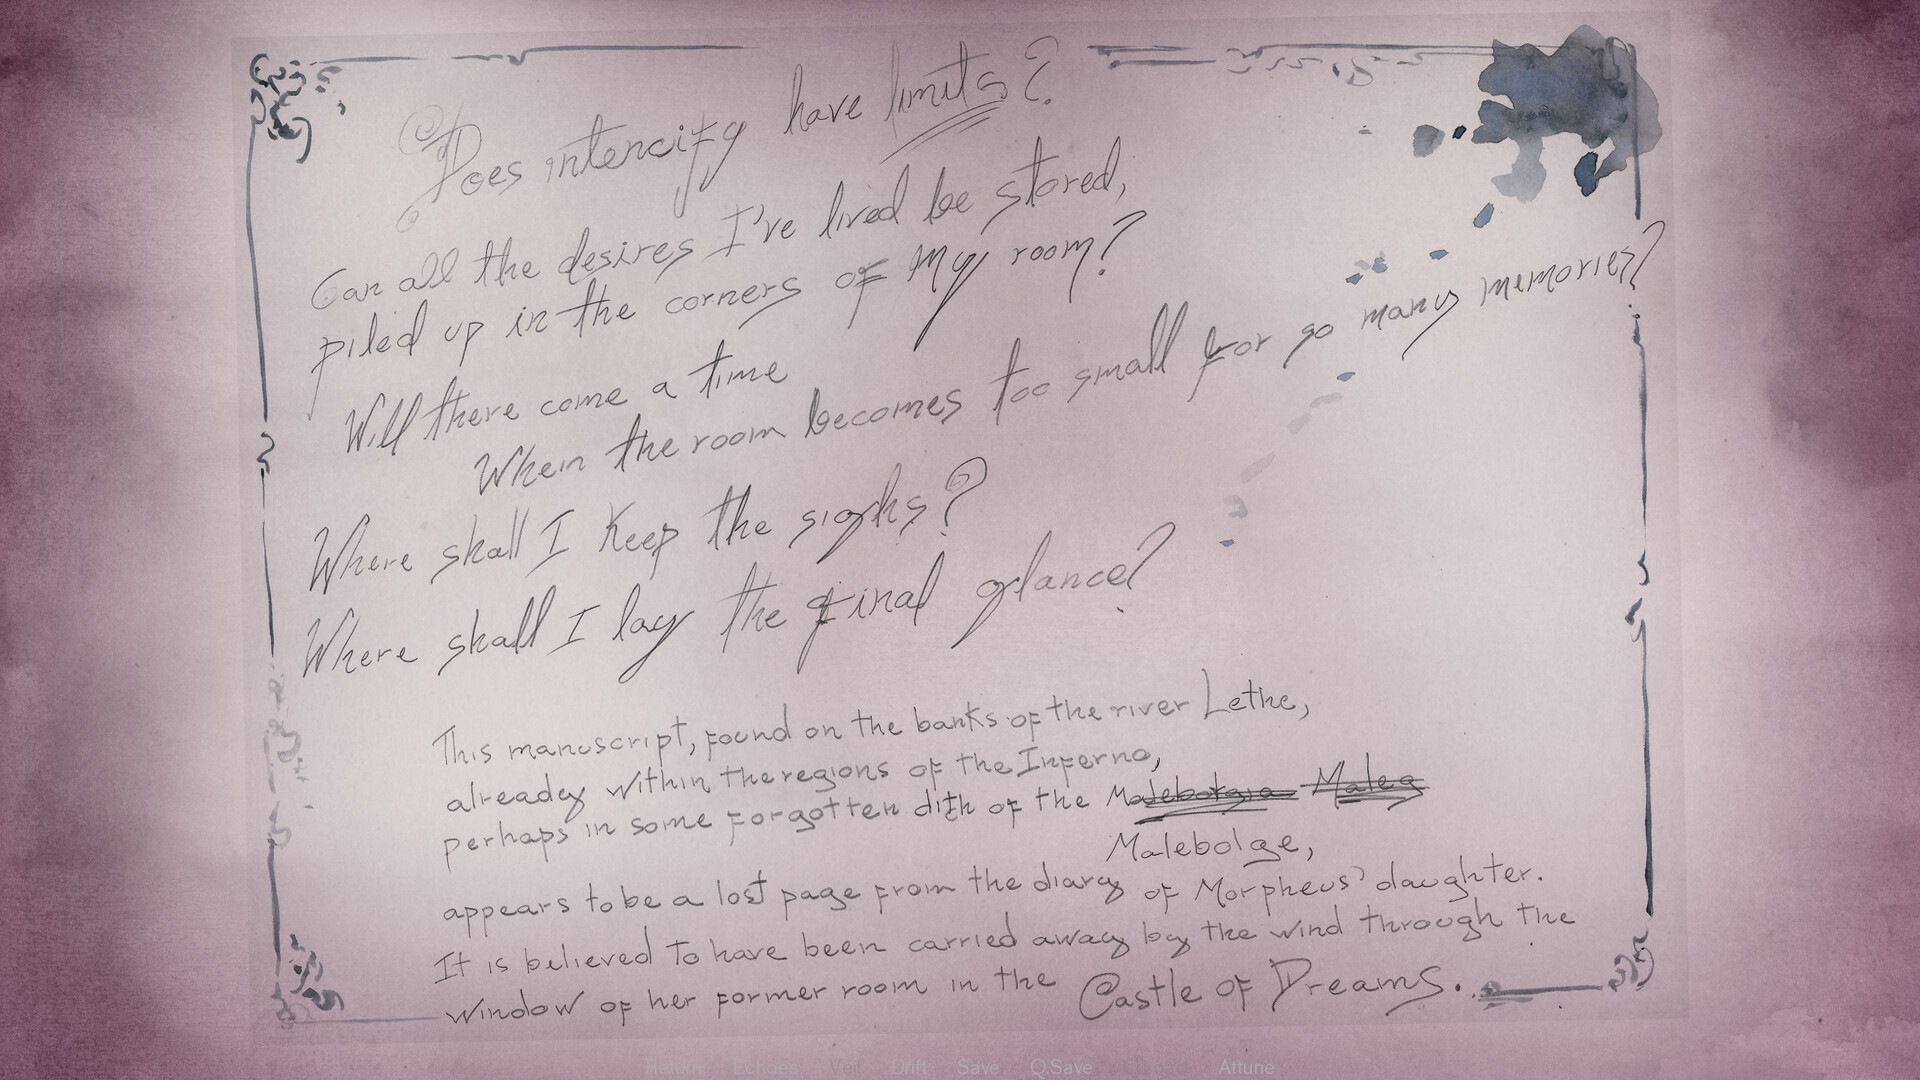 Does intencity have limits?
Can all the desires I've lived be stored,
piled up in the corners of my room?
Will there come a time
When the room becomes too small for so many memories?
Where shall I keep the sighs?
Where shall I lay the final glance?
This manuscript, found on the banks of the river Lethe,
already within the regions of the Inferno,
perhaps in some forgotten dith of the Malebolgia Maleg
Malebolge,
appears to be a lost page from the diary of Morpheus' daughter.
It is believed to have been carried away by the wind through the
window of her former room in the Castle of Dreams.
Return Echoes Veil Drift Save Q.Save Q.Load Attune